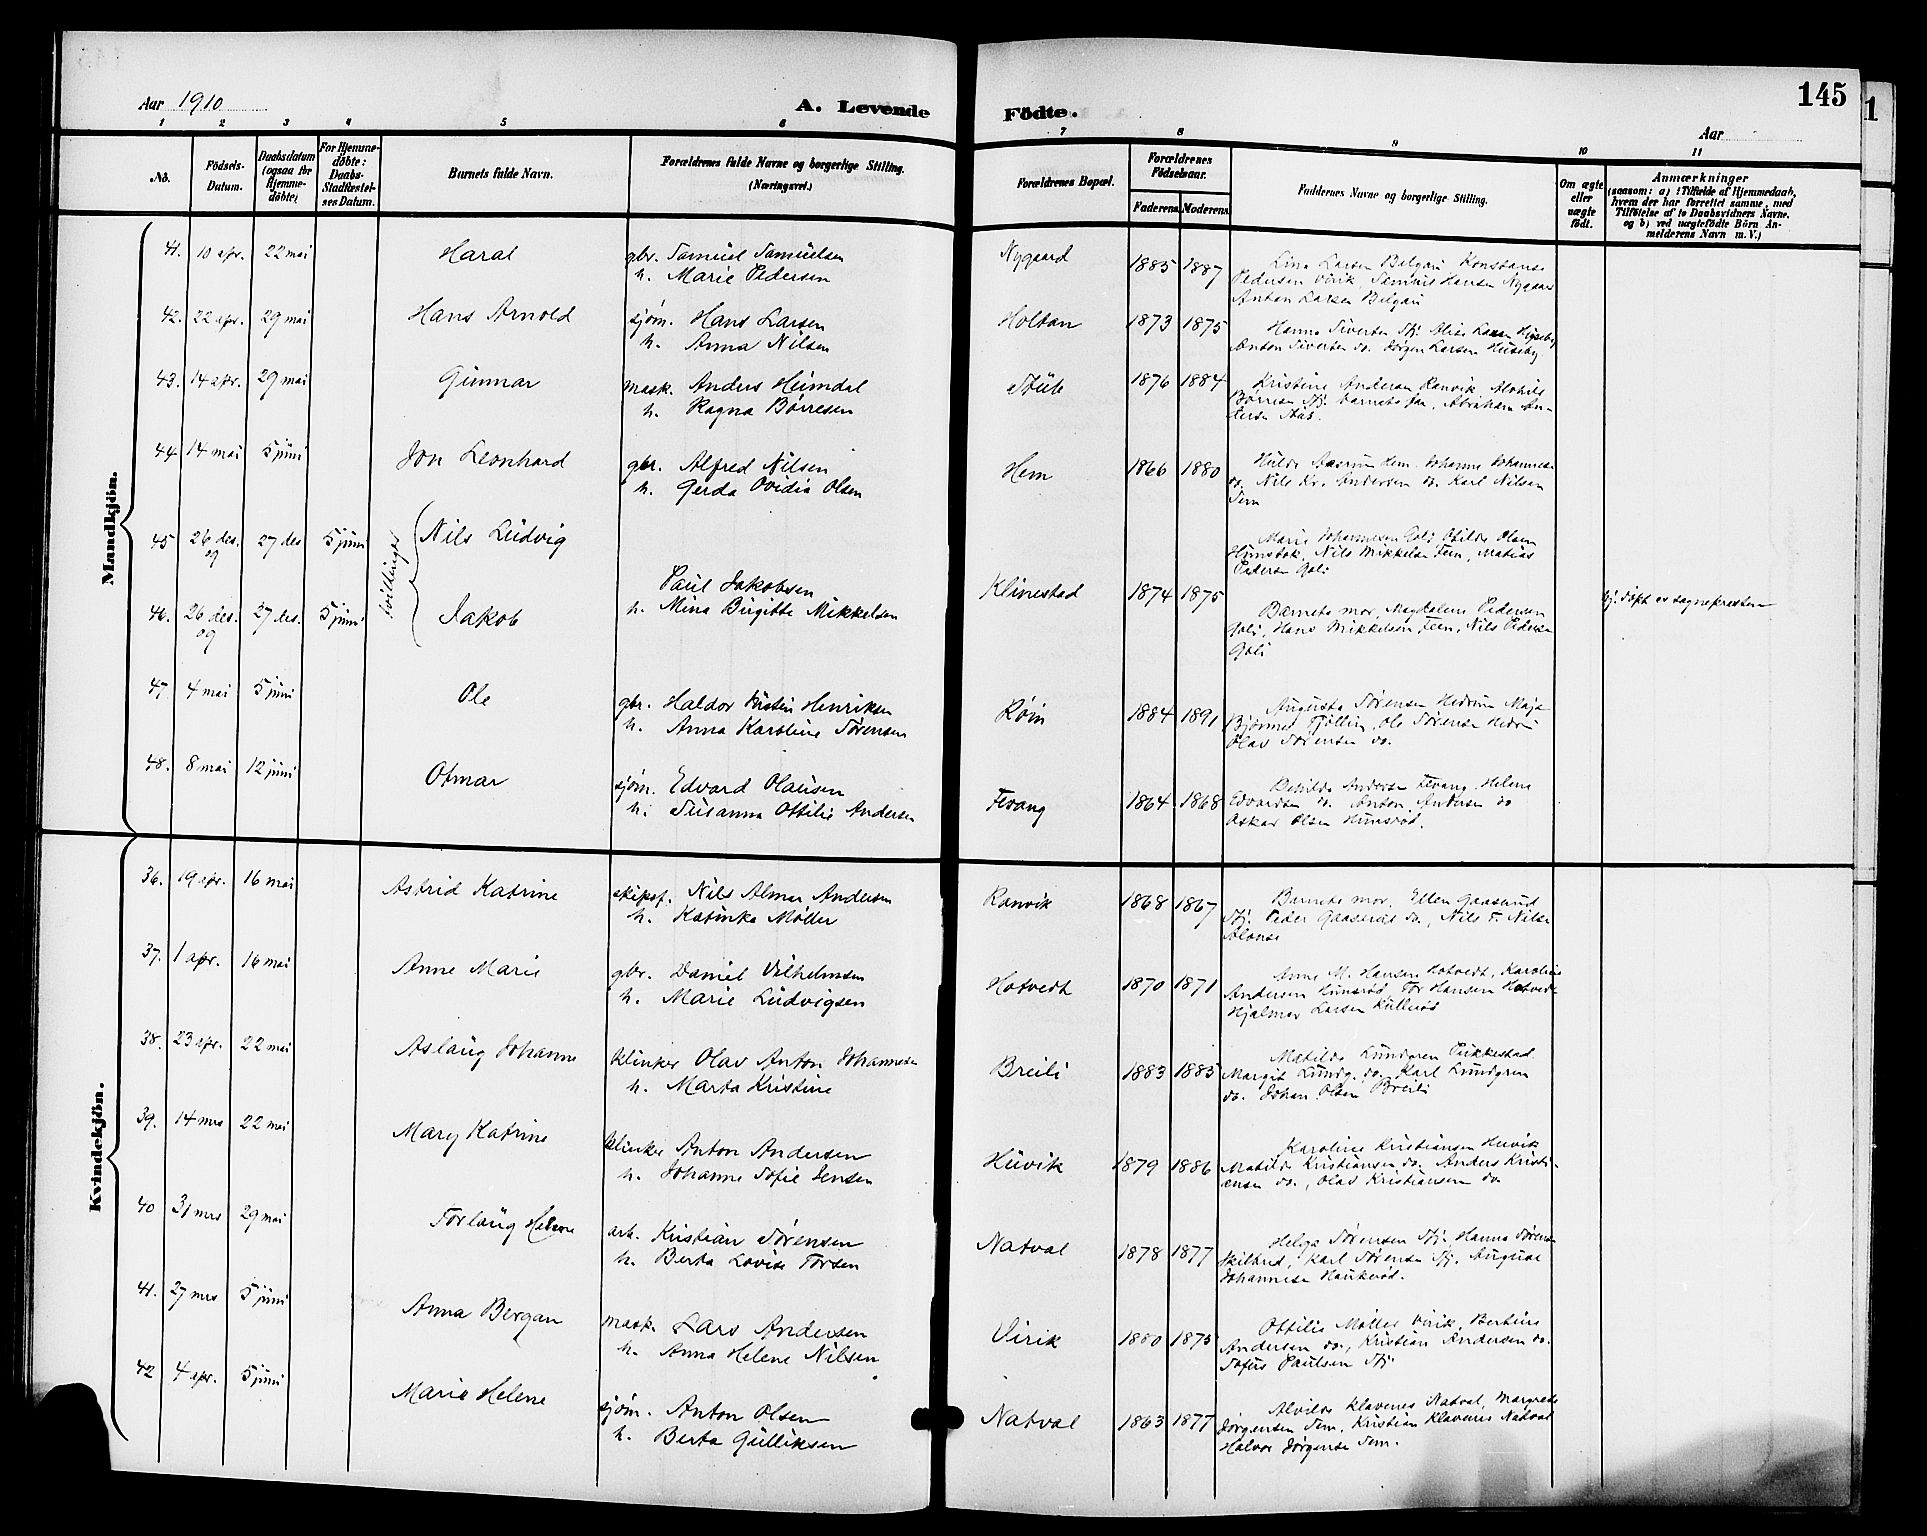 Aar 1910
A. Levende
Födte.
145
Aar
1 2 3 4 5 6 7 8 9 10 11
No.
Födsels-
Datum.
Daabsdatum
(ogsaa for
Hjemme-
döbte)
For Hjemme-
döbte:
Daabs-
Stadfæstel-
ses Datum.
Barnets fulde Navn.
Forældrenes fulde Navne og borgerlige Stilling.
(Næringsvei.)
Forældrenes Bopæl.
Forældrenes
Födselsaar.
Faderens. Moderens.
Faddernes Navne og borgerlige Stilling.
Om ægte
eller
uægte
födt.
Anmærkninger
(saasom: a) i Tilfælde af Hjemmedaab,
hvem der har forrettet samme, med
Tilföielse af to Daabsvidners Navne.
og b) ved uægtefödte Börn An-
melderens Navn m. V.)
Mandkjön.
41. 10 apr. 22 mai Haral gbr. Samuel Samuelsen Nygaard 1885 1887 Lina Larsen Bilgari Konstanse
h. Marie Pedersen Pedersen Virik, Samuel Hansen Nygaard
Anton Larsen Bilgari
42. 22 apr. 29 mai Hans Arnold sjøm. Hans Larsen Holtan 1873 1875 Hanna Sivertsen Sfj. Alise Larsen Huseby
h. Anna Nilsen Anton Sivertsen do. Jørgen Larsen Huseby
43. 14 apr. 29 mai Gunnar mask. Anders Heimdal Stub 1876 1884 Kristine Andersen Ranvik, Alvhild
h. Ragna Børresen Børresen Sfj. barnets far, Abraham An-
dersen Aas.
44 14 mai 5 juni Jon Leonhard gbr. Alfred Nilsen Hem 1866 1880 Hilda Aasrum Hem. Johanne Johannesen
h. Gerda Ovidia Olsen do. Nils Kr. Andersen do. Karl Nilsen
Fem
45 26 des. 09 27 des 5 juni Nils Ludvig Marie Johannesen Gali, Otilde Olsen
Himstok, Nils Mikkelsen Feen, Matias
Pedersen Gali
tvillinger
Paul Jakobsen Klinestad 1874 1875 hj. døpt av sogneprestern
h. Mina Birgitte Mikkelsen
46. 26 des. 09 27 des. 5 juni Jakob Barnets mor, Magdalene Pedersen
Gali, Hans Mikkelsen Feen, Nils Pedersen
Gali
47. 4 mai 5 juni Ole gbr. Haldor Kristin Henriksen Røin 1884 1891 Augusta Sørensen Hedrum Maja
h. Anna Karoline Sørensen Bjønnes Tjølling, Ole Sørensen Hedr.
Olav Sørensen do.
48. 8 mai 12 juni Otmar sjøm. Edvard Olausen Fevang 1864 1868 Betilda Andersen Fevang, Helene
h. Susanna Ottilie Andersen Edvardsen do. Anton Andersen do
Oskar Olsen Hunsrød.
Kvindekjön.
36. 19 apr. 16 mai Astrid Katrine skipsf. Nils Almar Andersen Ranvik 1868 1867 Barnets mor, Ellen Gaaserud
h. Katinka Møller Sfj. Peder Gaaserud do., Nils F. Nilsen
37. 1 apr. 16 mai Anne Marie gbr. Daniel Vilhelmsen Hotvedt 1870 1871 Anne M. Hansen Hotvedt, Karoline
h. Marie Ludvigsen Andersen Hunsrød Tor Hansen Hotvedt
Hjalmar Larsen Kullerød
38. 23 apr. 22 mai Aslaug Johanne klinker Olav Anton Johannesen Breili 1883 1885 Matilde Lundgren Pukkestad
h. Marta Kristine Margit Lundg. do. Karl Lundgren
do. Johan Olsen Breili
39. 14 mrs 22 mai Mary Katrine klinker Anton Andersen Huvik 1879 1886 Karoline Kristiansen Huvik
h. Johanne Sofie Jensen Matilde Kristiansen do. Anders Kristi-
ansen do., Olav Kristiansen do
40 31 mrs 29 mai Torlaug Helene arb. Kristian Sørensen Natval 1878 1877 Helga Sørensen Sfj. Hanna Sørensen
h. Berta Lovise Torsen Skiltred, Karl Sørensen Sfj. August
Johannesen Haukerød.
41. 27 mrs 5 juni Anna Bergan mask. Lars Andersen Virik 1880 1875 Ottilie Møller Virik, Bertine
h. Anna Helene Nilsen Andersen do., Kristian Andersen do.
Sofus Paulsen Sfj
42 4 apr. 5 juni Marie Helene sjøm. Anton Olsen Natval 1863 1877 Alvilde Klavenes Natval, Margrete
h. Berta Gulliksen Jørgensen Fem, Kristian Klavenes Natval
Halvor Jørgensen Fem.